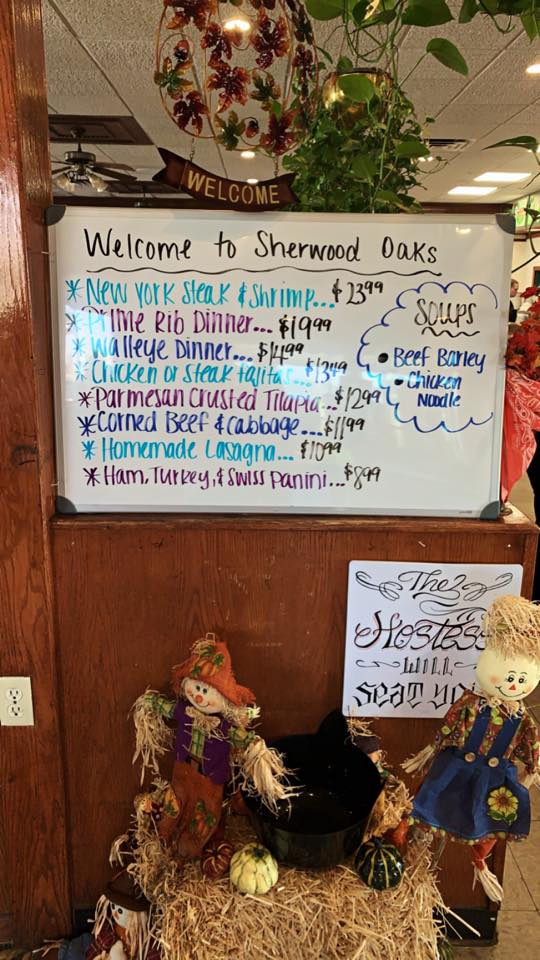 WELCOME
Welcome to Sherwood Oaks
* New York Steak & Shrimp... $23⁹⁹
* Prime Rib Dinner... $19⁹⁹
* Walleye Dinner... $14⁹⁹
* Chicken or Steak Fajitas...$13⁴⁹
* Parmesan Crusted Tilapia...$12⁹⁹
* Corned Beef & Cabbage...$11⁹⁹
* Homemade Lasagna... $10⁹⁹
* Ham, Turkey, & Swiss Panini...$8⁹⁹
Soups
• Beef Barley
• Chicken
Noodle
The
Hostess
WILL
Seat You